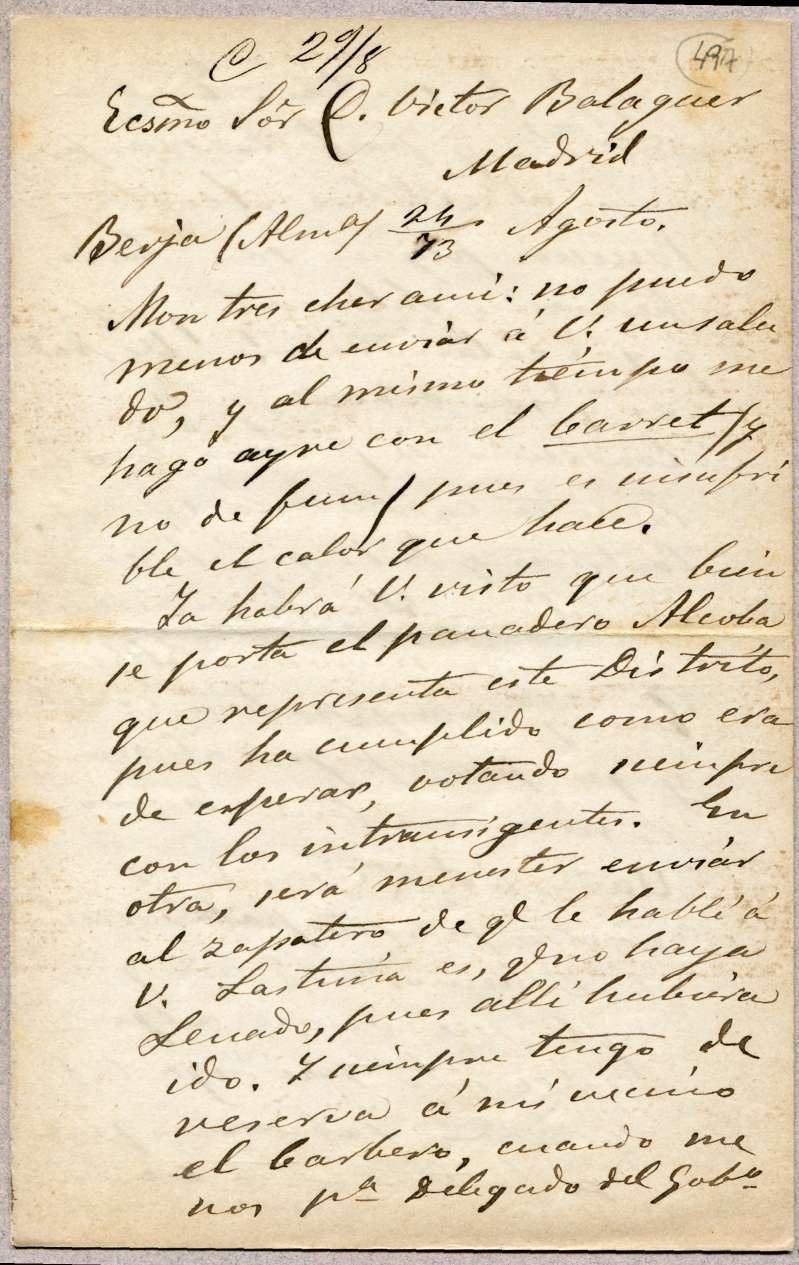 C 29/8
497
Ecsmo Sór D. Victor Balaguer
Madrid
Berja (Almª) 24/73 Agosto.
Mon tres cher ami: no puedo
menos de enviar á V. un salu
do, y al mismo tiémpo me
hago ayre con el barret (y
no de fum) pues es insufri
ble el calor que hace.
Ya habrá V. visto que bien
se porta el panadero Alcoba
que representa este Distrito,
pues ha cumplido como era
de esperar, votando siempre
con los intransigentes. En
otra, será menester enviár
al zapatero de qe le hablé á
V. Lastima es, qe no haya
Senado, pues allí hubiera
ido. Y siempre tengo de
reserva á mi vecino
el barbero, cuando me
nos pª Delegado del Gobº